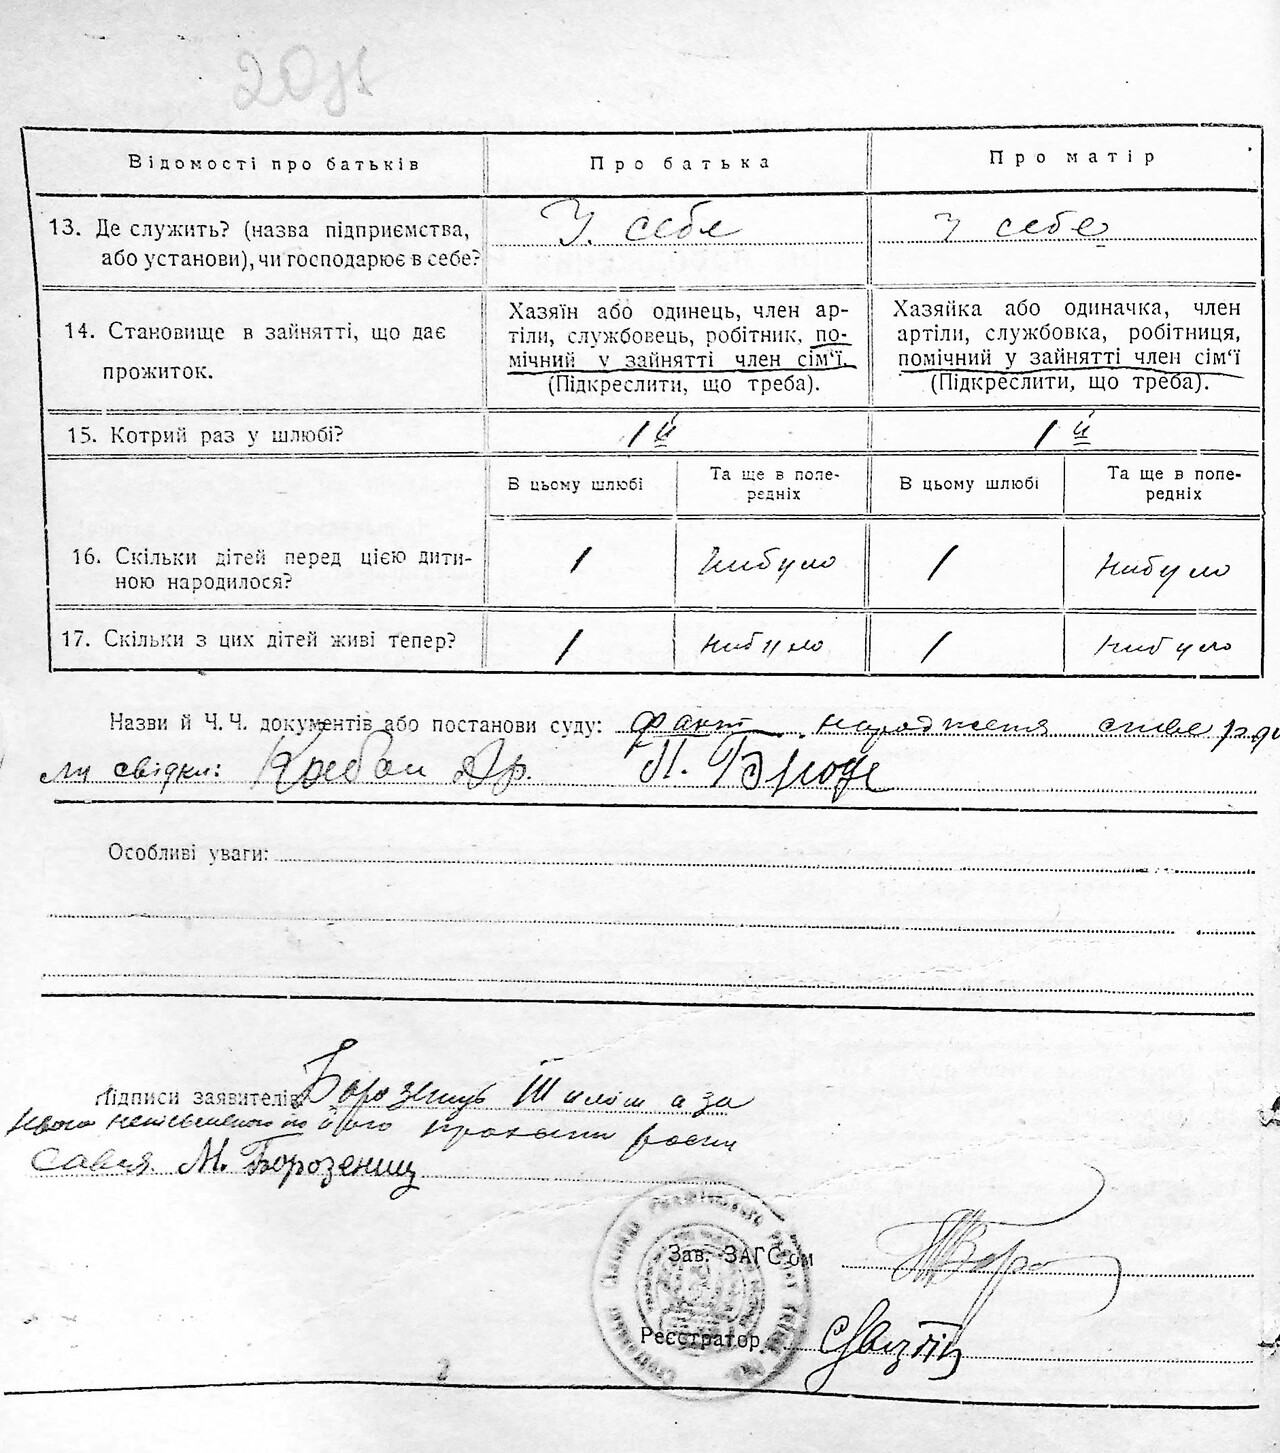 Відомості про батьків
Про батька
Про матір
13. Де служить? (назва підприємства,
або установи), чи господарює в себе?
У себе
У себе
14. Становище в зайнятті, що дає
прожиток.
Хазяїн або одинець, член ар-
тіли, службовець, робітник, по-
мічний у зайнятті член сім‘ї.
(Підкреслити, що треба).
Хазяйка або одиначка, член
артіли, службовка, робітниця,
помічний у зайнятті член сім‘ї
(Підкреслити, що треба).
15. Котрий раз у шлюбі?
1й
1й
В цьому шлюбі
Та ще в попе-
редніх
В цьому шлюбі
Та ще в попе-
редніх
16. Скільки дітей перед цією дити-
ною народилося?
1
нибуло
1
нибуло
17. Скільки з цих дітей живі тепер?
1
нибуло
1
нибуло
Назви й Ч. Ч. документів або постанови суду: факт народження
ли свідки:
Особливі уваги:
Підписи заявителів: а за
його
М. Борозенец
Зав. ЗАГС‘ом
Реєстратор
2